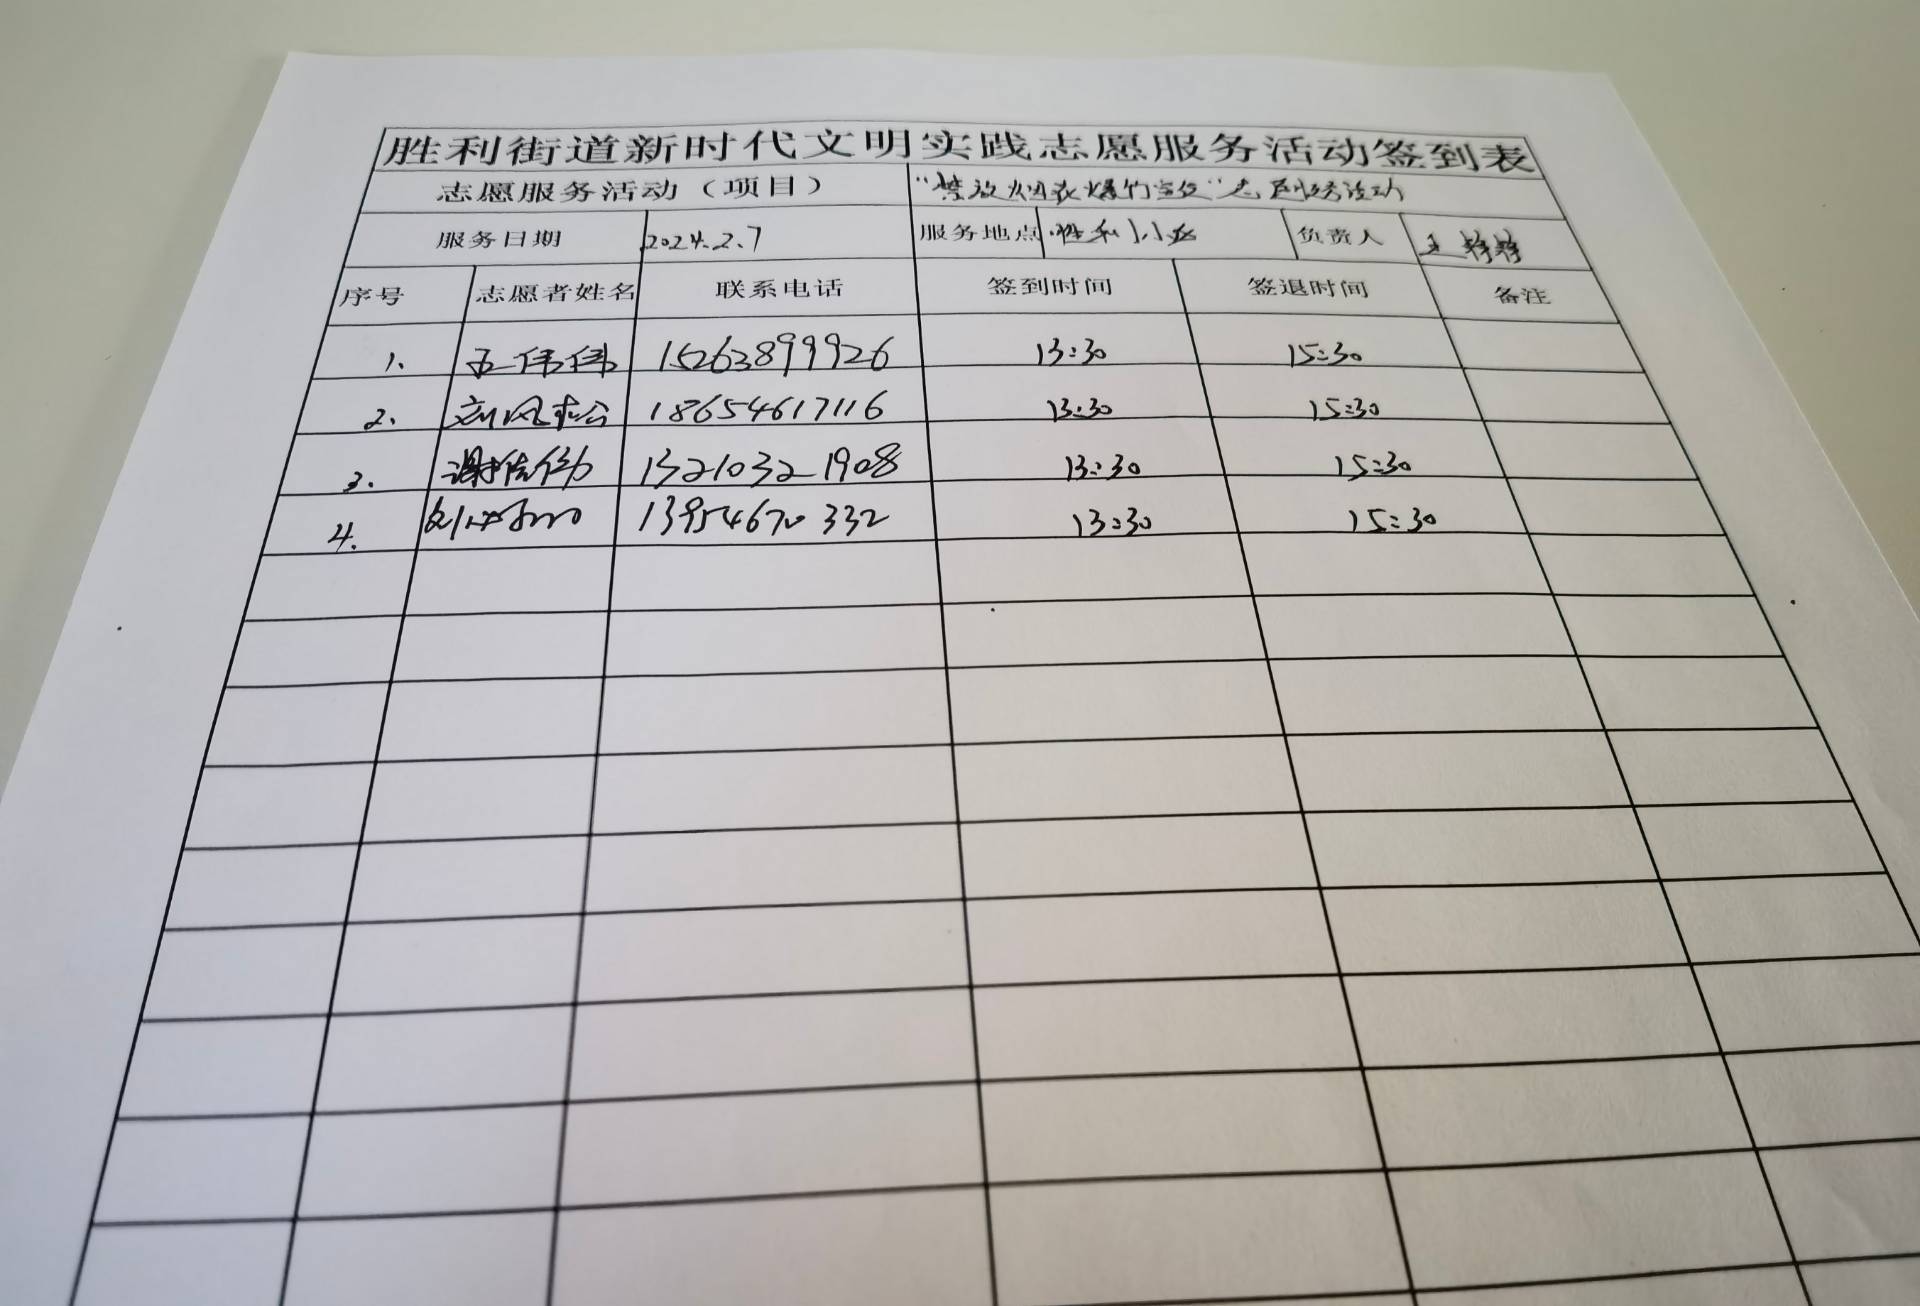 胜利街道新时代文明实践志愿服务活动签到表
志愿服务活动（项目） "禁放烟花爆竹宣传"志愿服务活动
服务日期 2024.2.7 服务地点 胜利小区 负责人 王婷婷
序号 志愿者姓名 联系电话 签到时间 签退时间 备注
1. 王伟伟 15263899926 13:30 15:30
2. 刘风 18654617116 13:30 15:30
3. 谢 13210321908 13:30 15:30
4. 刘 13954670332 13:30 15:30